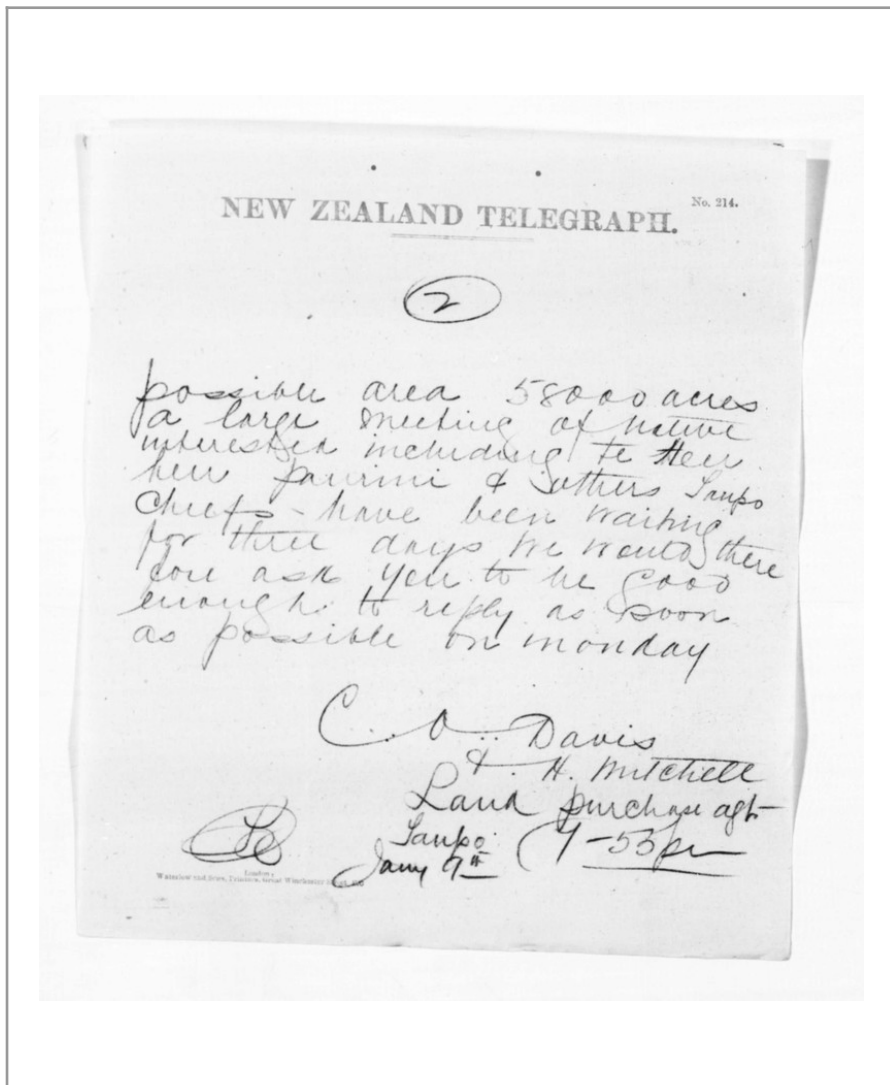 NEW ZEALAND TELEGRAPH.
No. 214.
2
possible area 58000 acres
a large meeting of native
interested including Te Heu
heu paurini & others Taupo
Chiefs - have been waiting
for three days we would there
fore ask you to be good
enough to reply as soon
as possible on monday
C. O. Davis
& H. Mitchell
Land purchase agt
Taupo
Jany 9th
7-53 pm
London:
Waterlow and Sons, Printers, Great Winchester